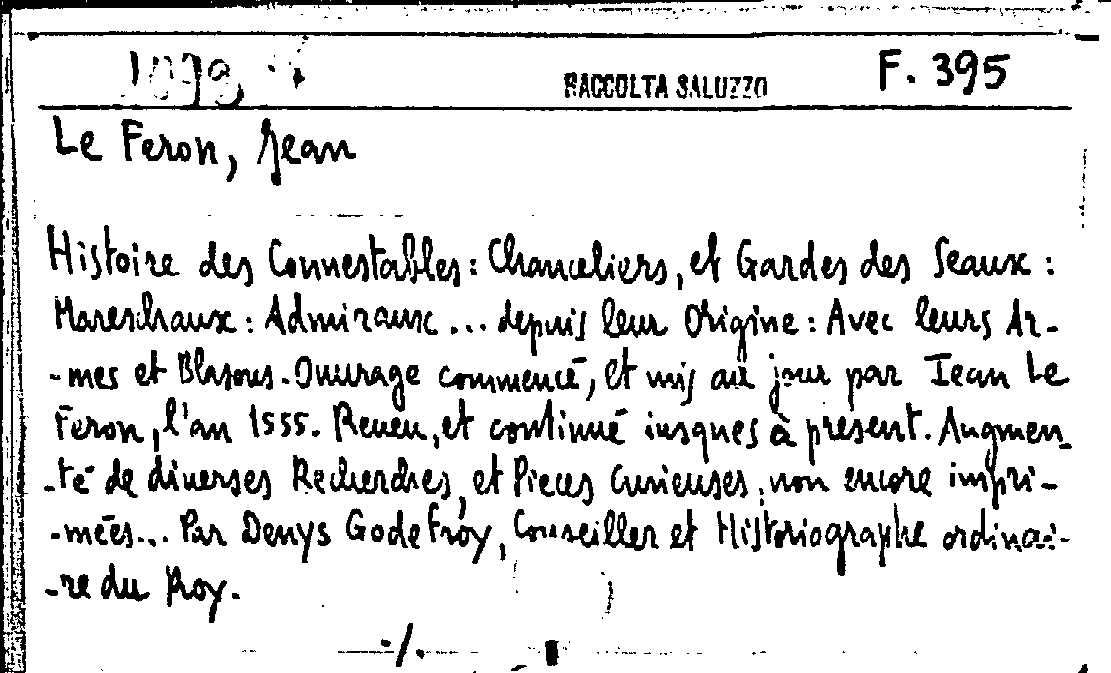 1098
RACCOLTA SALUZZO
F. 395
Le Feron, Jean
Histoire des Connestables: Chanceliers, et Gardes des Seaux:
Mareschaux: Admiraux... depuis leur Origine: Avec leurs Ar-
-mes et Blasons. Ouurage commencé, et mis au jour par Iean Le
Feron, l'an 1555. Reueu, et continué iusques à present. Augmen-
-té de diuerses Recherches, et Pieces Curieuses, non encore impri-
-mées... Par Denys Godefroy, Conseiller et Historiographe ordinai-
-re du Roy.
./.